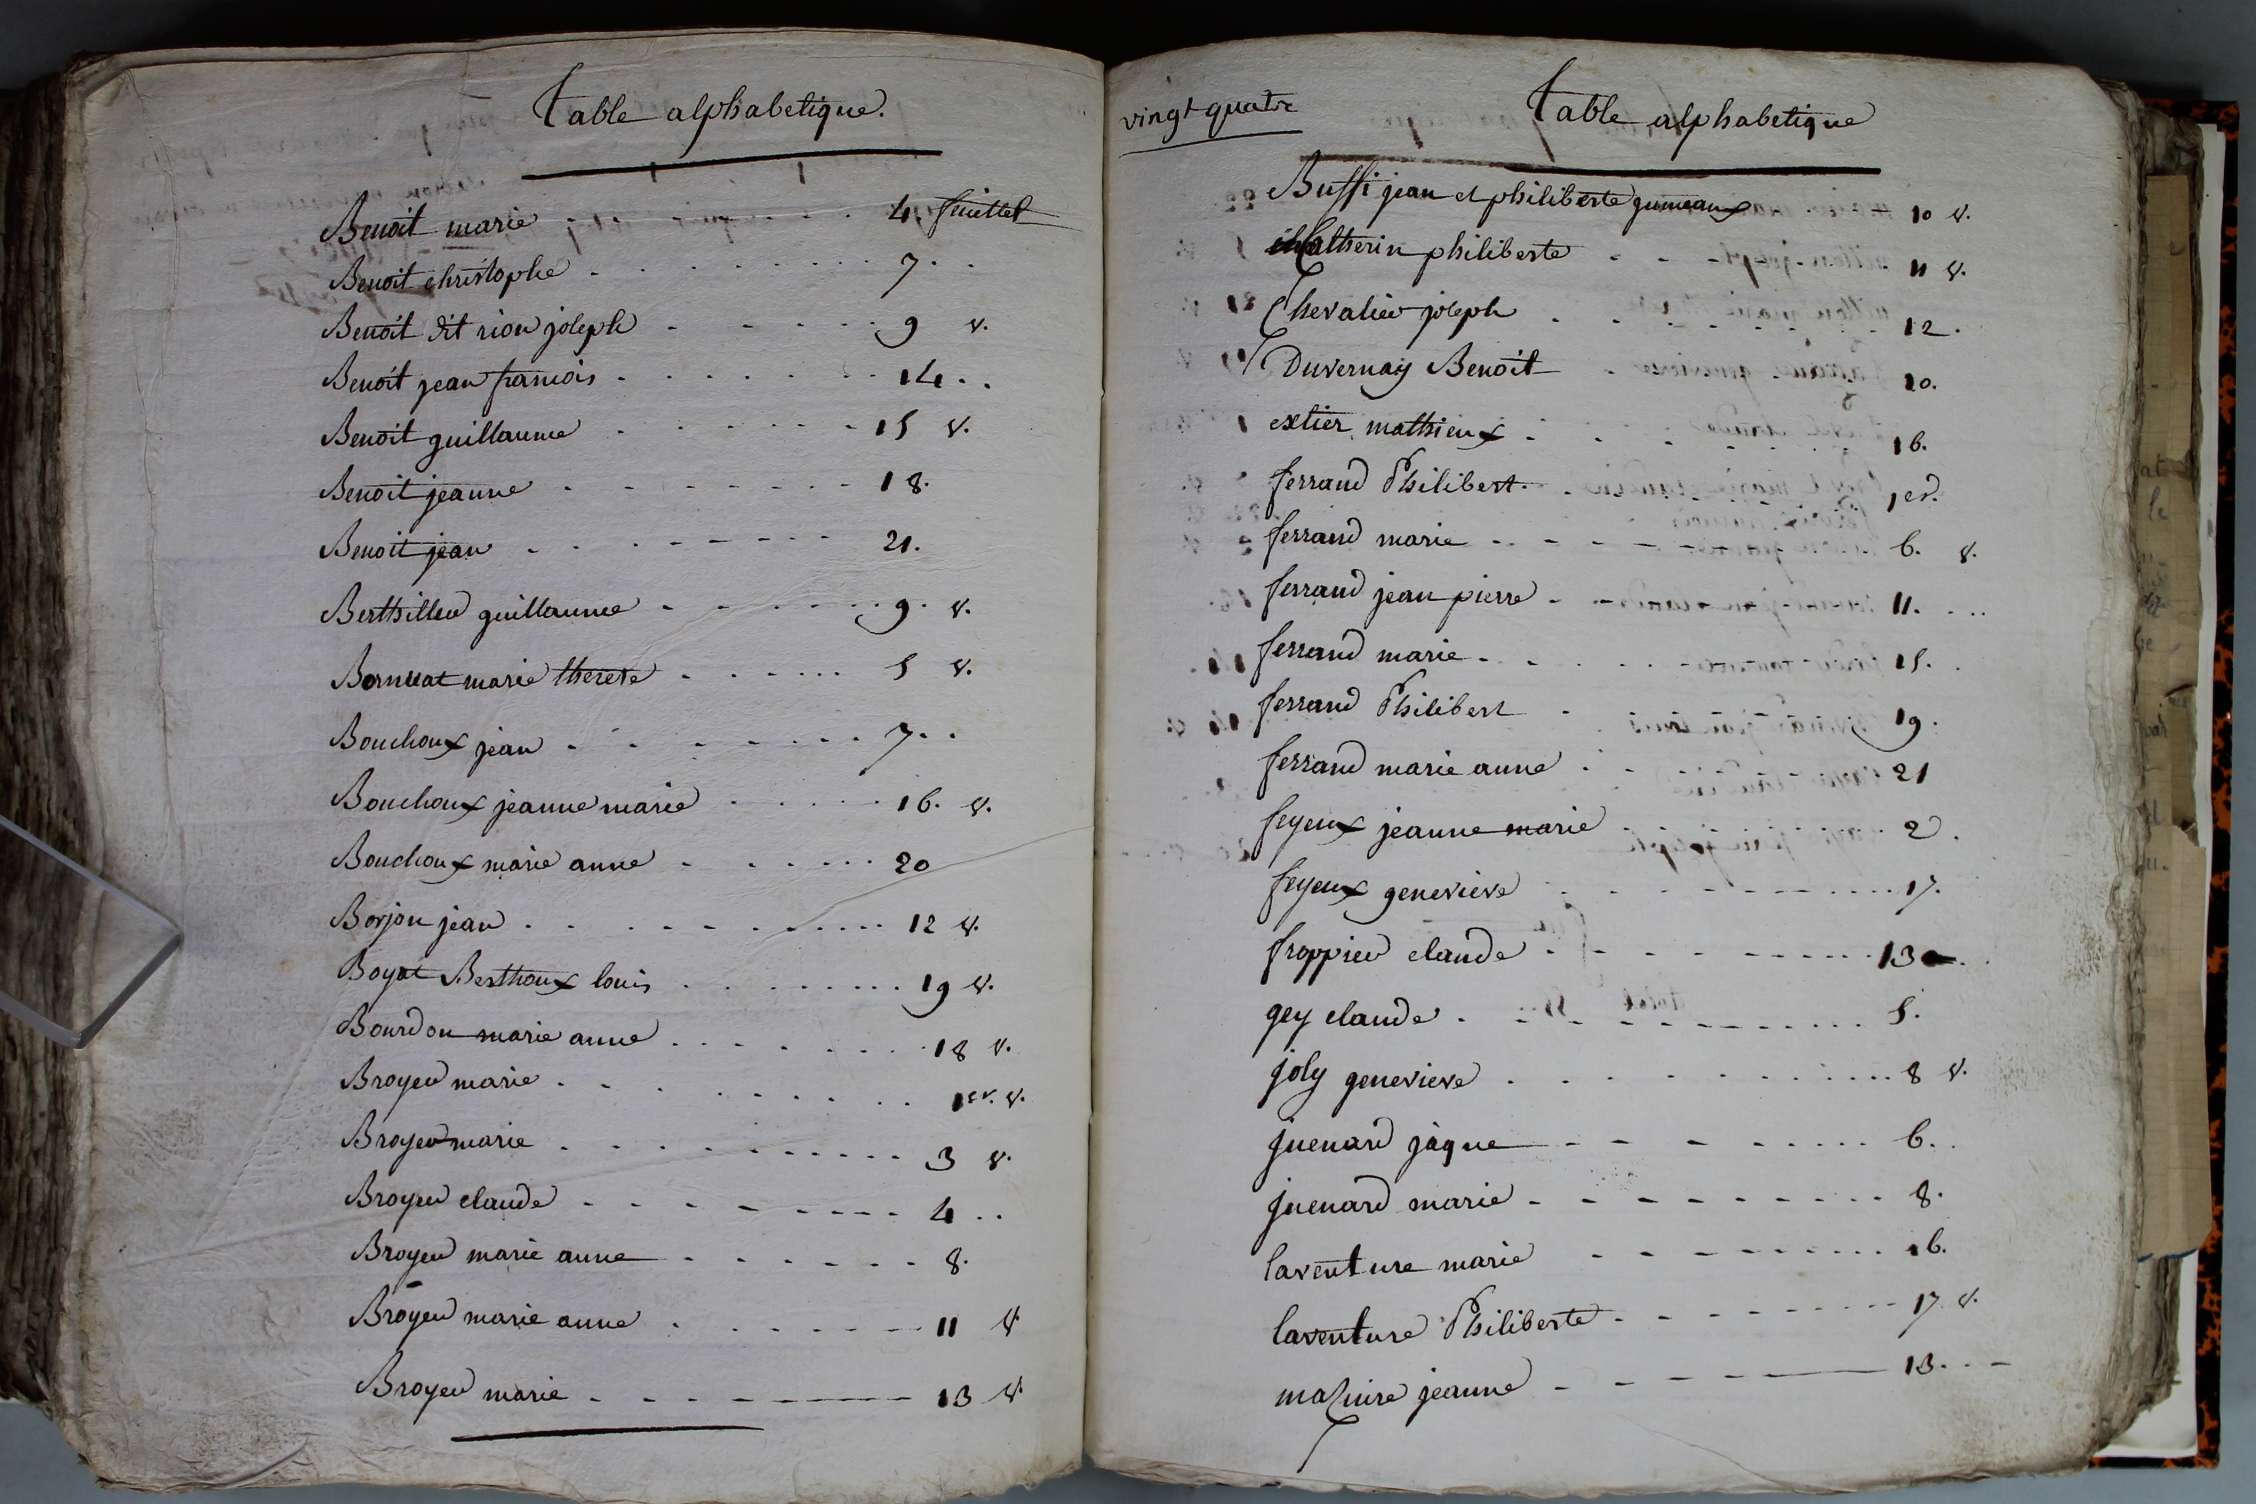 Table alphabetique.
Benoit marie 4. feuillet
Benoit christophe 7.
Benoit dit rion joseph 9 v.
Benoit jean francois 14.
Benoit guillaume 15 v.
Benoit jeanne 18.
Benoit jean 21.
Berthillier guillaume 9. v.
Bornuat marie therese 5 v.
Bouchoux jean 7.
Bouchoux jeanne marie 16. v.
Bouchoux marie anne 20
Borjon jean 12 v.
Boyat Berthoux louis 19 v.
Bourdon marie anne 18 v.
Broyer marie 1er. v.
Broyer marie 3 v.
Broyer claude 4
Broyer marie anne 8.
Broyer marie anne 11 v
Broyer marie 13 v.
vingt quatre
Table alphabetique
Buffi jean et philiberte jumeaux 10 v.
Catherin philiberte 11 v.
Chevalier joseph 12.
Duvernay Benoit 20.
extier mathieux 16.
ferrand Philibert. 1er.
ferrand marie 6. v.
ferrand jean pierre 11.
ferrand marie 15.
ferrand Philibert 19.
ferrand marie anne 21
feyeux jeanne marie 2.
feyeux genevieve 17.
froppier claude 13
gey claude 5.
joly genevieve 8 v.
juenard jaque 6.
juenard marie 8.
laventure marie 16.
laventure Philiberte 17 v.
mazuire jeanne 13.